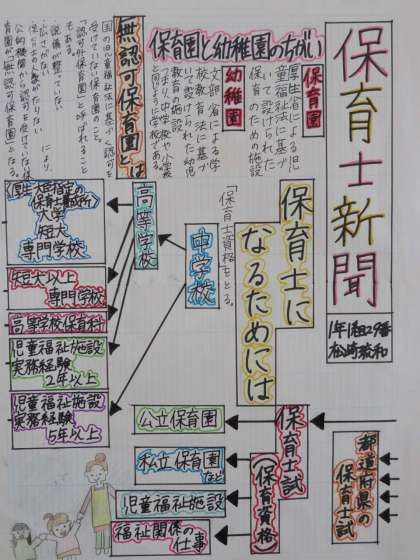 保育士新聞
1年1組29番
保育園と幼稚園のちがい
保育園
厚生省による児
童福祉法に基づ
いて設けられた
保育のための施設
幼稚園
文部省による学
校教育法に基づ
いて設けられた幼児
教育の施設
つまり、中学校や小学校
と同じように学校である。
無認可保育園とは
国の児童福祉法に基づく認可を
受けていない保育園のこと。
「認可外保育園」と呼ばれること
もある。
設備が整っていない
広さがない
保育士の人数がたりない
により、
公的機関から認可を受けていない保
育園が「無認可保育園」となる。
保育士に
なるためには
「保育士資格」をとる。
中学校
高等学校
厚生大臣指定の
保育士養成所
大学
短大
専門学校
短大以上
専門学校
高等学校保育科
児童福祉施設
実務経験
2年以上
児童福祉施設
実務経験
5年以上
都道府県の
保育士試
保育士試
(保育資格
公立保育園
私立保育園
など
児童福祉施設
福祉関係の仕事